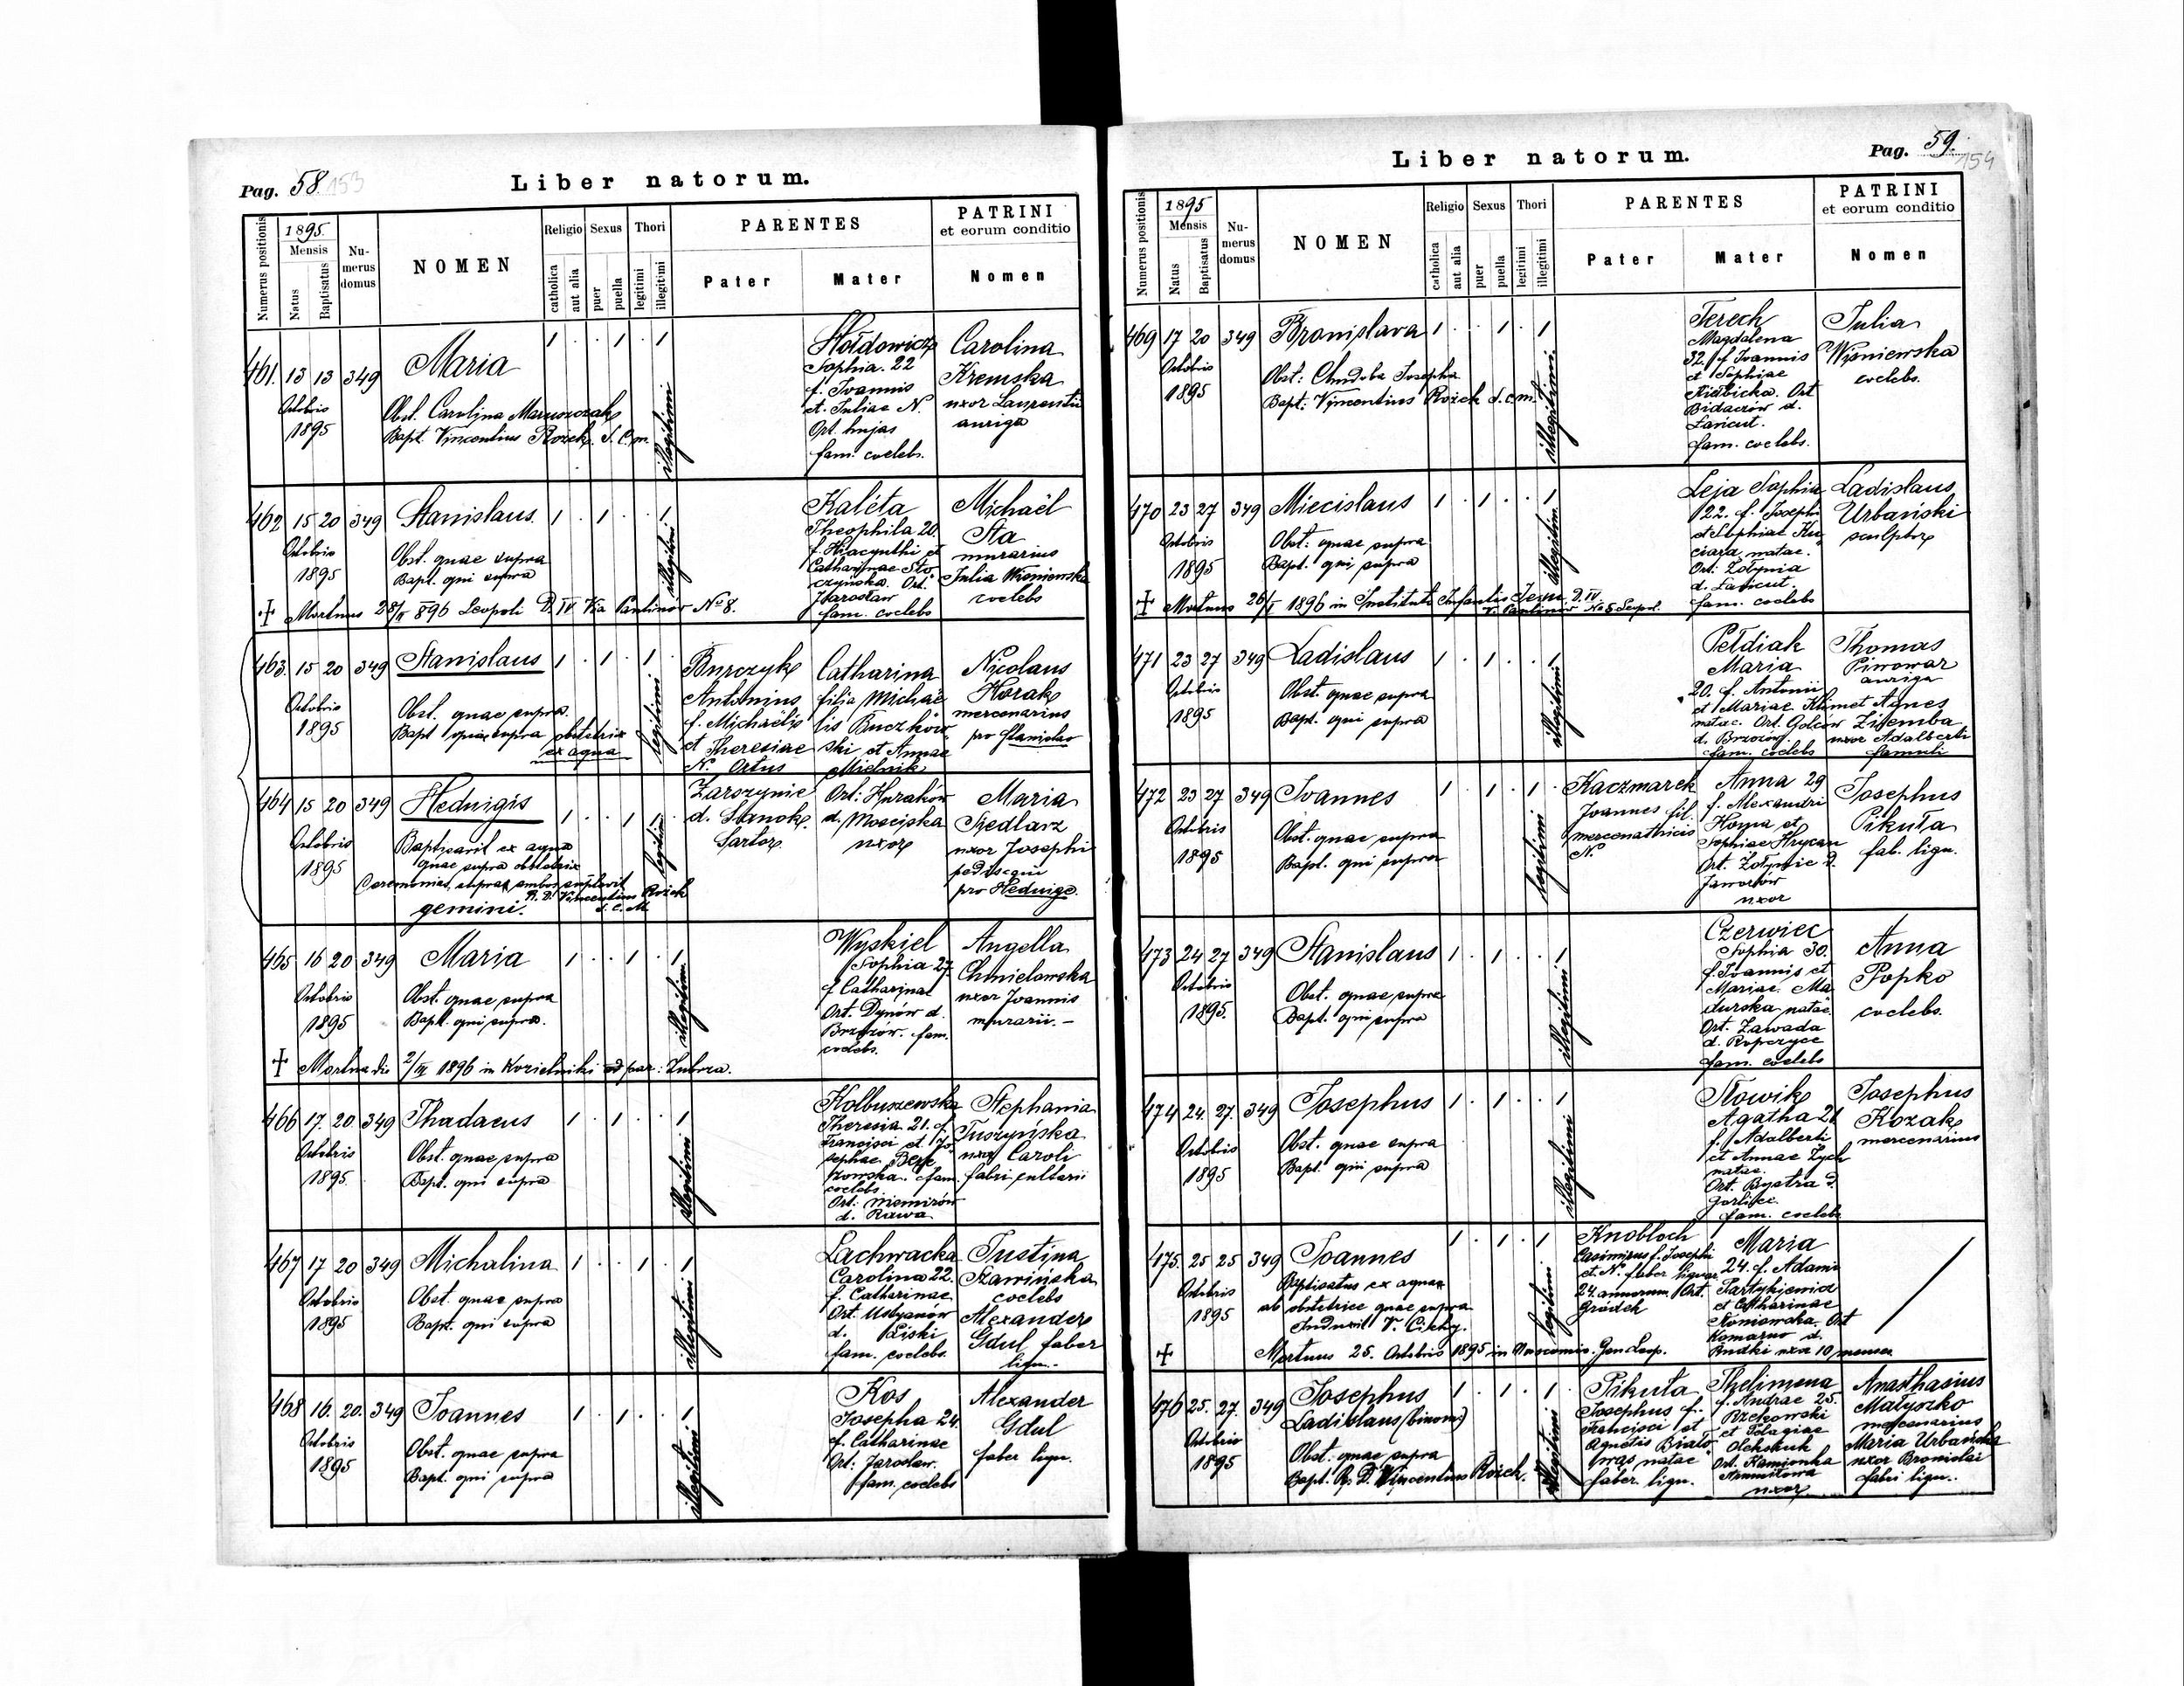 Pag. 58. 153
Liber natorum.
Numerus positionis
1895.
Mensis
Natus
Baptisatus
Nu-
merus
domus
NOMEN
Religio
catholica
aut alia
Sexus
puer
puella
Thori
legitimi
illegitimi
PARENTES
Pater
Mater
PATRINI
et eorum conditio
Nomen
461. 13 13 349 Maria 1 . . 1 . 1
Octobris
1895
Obst. Carolina
Bapt. Vincentius Rożek S. C. m.
illegitimi
Hołdowicz
Sophia. 22
f. Joannis
et Juliae N.
Ort. hujas
fam. coelebs.
Carolina
Kremska
uxor Laurentii
auriga
462 15 20 349 Stanislaus. 1 . 1 . . 1
Octobris
1895
Obst. quae supra
Bapt. qui supra
illegitimi
Kaléta
Theophila 20.
f. Hiacynthi et
Catharinae Sto
czyńska. Ort.
Jarosław
fam. coelebs
Michaël
Sta
murarius
Julia Wisniewska
coelebs
+ Mortuus 28/ 896 Leopoli D. IV. Via No 8.
463. 15 20 349 Stanislaus 1 . 1 . 1
Octobris
1895
Obst. quae supra.
Bapt quae supra obstetrix
ex aqua
legitimi
Burczyk
Antonius
f. Michaëlis
et Theresiae
N. Ortus
Zarszynie
d. Sanok.
Sartor
Catharina
filia Michaë
lis Buczkow
ski et Annae
Mielnik
Ort: Hurakow
d. Mosciska
uxor
Nicolaus
Horak
mercenarius
pro Stanislao
464 15 20 349 Hedvigis 1 . . 1 1
Octobris
1895
Baptisavit ex aqua
quae supra obstetrix
Ceremonias supra ambos suplevit
R. D. Vincentius Rożek
S. C. M.
gemini.
legitimi
Maria
Siedlarz
uxor Josephi
pedisequi
pro Hedvige.
465 16 20 349 Maria 1 . . 1 . 1
Octobris
1895
Obst. quae supra
Bapt. qui supra.
illegitimi
Wyskiel
Sophia 27.
f. Catharinae
Ort. Dynów d.
Brzozów. fam.
coelebs.
Angella
Chmielowska
uxor Joannis
murarii. –
+ Mortua die 2/III 1896 in Kozielniki ad par: Zubrza.
466 17. 20. 349 Thadaeus 1 . 1 . . 1
Octobris
1895.
Obst. quae supra
Bapt. qui supra
illegitimi
Kolbuszewska
Theresia 21. f.
Francisci et Jo
sephae
fam.
coelebs.
Ort. Niemirów
d. Rawa
Stephania
Tuszyńska
uxor Caroli
fabri cultarii
467 17 20 349 Michalina 1 . . 1 . 1
Octobris
1895
Obst. quae supra
Bapt. qui supra
illegitimi
Lachwacka
Carolina 22.
f. Catharinae
Ort. Ustyanów
d. Liski
fam. coelebs.
Justina
Szawińska
coelebs
Alexander
Gdul faber
lign.
468 16. 20. 349 Joannes 1 . 1 . . 1
Octobris
1895
Obst. quae supra
Bapt. qui supra
illegitimi
Kos
Josepha 24.
f. Catharinae
Ort: Jaroslaw.
fam. coelebs
Alexander
Gdul
faber lign.
Pag. 59. 154
Liber natorum.
Numerus positionis
1895
Mensis
Natus
Baptisatus
Nu-
merus
domus
NOMEN
Religio
catholica
aut alia
Sexus
puer
puella
Thori
legitimi
illegitimi
PARENTES
Pater
Mater
PATRINI
et eorum conditio
Nomen
469 17 20 349 Bronislava 1 . . 1 . 1
Octobris
1895
Obst: Chudoba Josepha
Bapt: Vincentius Rożek S. C. m.
illegitimi.
Terech
Magdalena
32. f. Joannis
et Sophiae
Ort
Bidaczów d.
Łańcut.
fam. coelebs.
Julia
Wiśniewska
coelebs.
470 23 27 349 Miecislaus 1 . 1 . . 1
Octobris
1895
Obst: quae supra
Bapt. qui supra
illegitimi
Leja Sophia
22. f. Josephi
et Sophiae Ku
ciara, natae.
Ort: Żołynia
d. Łańcut.
fam. coelebs
Ladislaus
Urbański
sculptor
+ Mortuus 26/I 1896 in Instituto Infantis Jesu D. IV.
No 5 Leopol.
471 23 27 349 Ladislaus 1 . 1 . . 1
Octobris
1895
Obst. quae supra
Bapt. qui supra
illegitimi
Pełdiak
Maria
20. f. Antonii
et Mariae Klimet
natae. Ort. Golcow
d. Brzozów.
fam. coelebs
Thomas
Piwowar
auriga
Agnes
Ziemba
uxor Adalberti
famuli
472 23 27 349 Joannes 1 . 1 . 1 .
Octobris
1895
Obst. quae supra
Bapt. qui supra
legitimi
Kaczmarek
Joannes fil.
mercenathicis
N.
Anna 29
f. Alexandri
Homa et
Sophiae Hrycan
Ort. Żołynie d.
Jaworów
uxor
Josephus
Pikuła
fab. lign.
473 24 27 349 Stanislaus 1 . 1 . . 1
Octobris
1895.
Obst. quae supra
Bapt. qui supra
illegitimi
Czerwiec
Sophia 30.
f. Joannis et
Mariae Ma
durska natae.
Ort. Zawada
d. Ropczyce
fam. coelebs
Anna
Popko
coelebs.
474 24. 27. 349 Josephus 1 . 1 . . 1
Octobris
1895
Obst. quae supra
Bapt. qui supra
illegitimi
Słowik
Agatha 21
f. Adalberti
et Annae Zych
natae.
Ort. Bystra d.
Gorlice.
fam. coelebs
Josephus
Kozak
mercenarius
475. 25 25 349 Joannes 1 . 1 . 1
Octobris
1895
Baptisatus ex aqua
ab obstetrice quae supra
Induxit V. Cichy.
legitimi
Knobloch
Casimirus f. Josephi
et N. faber lignar.
24. annorum Ort.
Gródek
Maria
24. f. Adami
et Catharinae
Słoniowska. Ort
Komarno d.
Rudki uxor 10 menses
+ Mortuus 25. Octobris 1895 in Nosocomio. Gen Leop.
476 25. 27. 349 Josephus 1 . 1 . 1
Ladislaus (binom)
Octobris
1895
Obst. quae supra
Bapt. R. D. Vincentius Rożek.
illegitimi
Pikuła
Josephus f.
Francisci et
Agnetis Biało
wąs natae
faber lign.
Thelimena
f. Andrae 25.
Rzekowski
et Pelagiae
Olekshuk
Ort. Kamionka
Strumiłowa
uxor
Anasthasius
Matyszko
mercenarius
Maria Urbańska
uxor Bronislai
fabri lign.